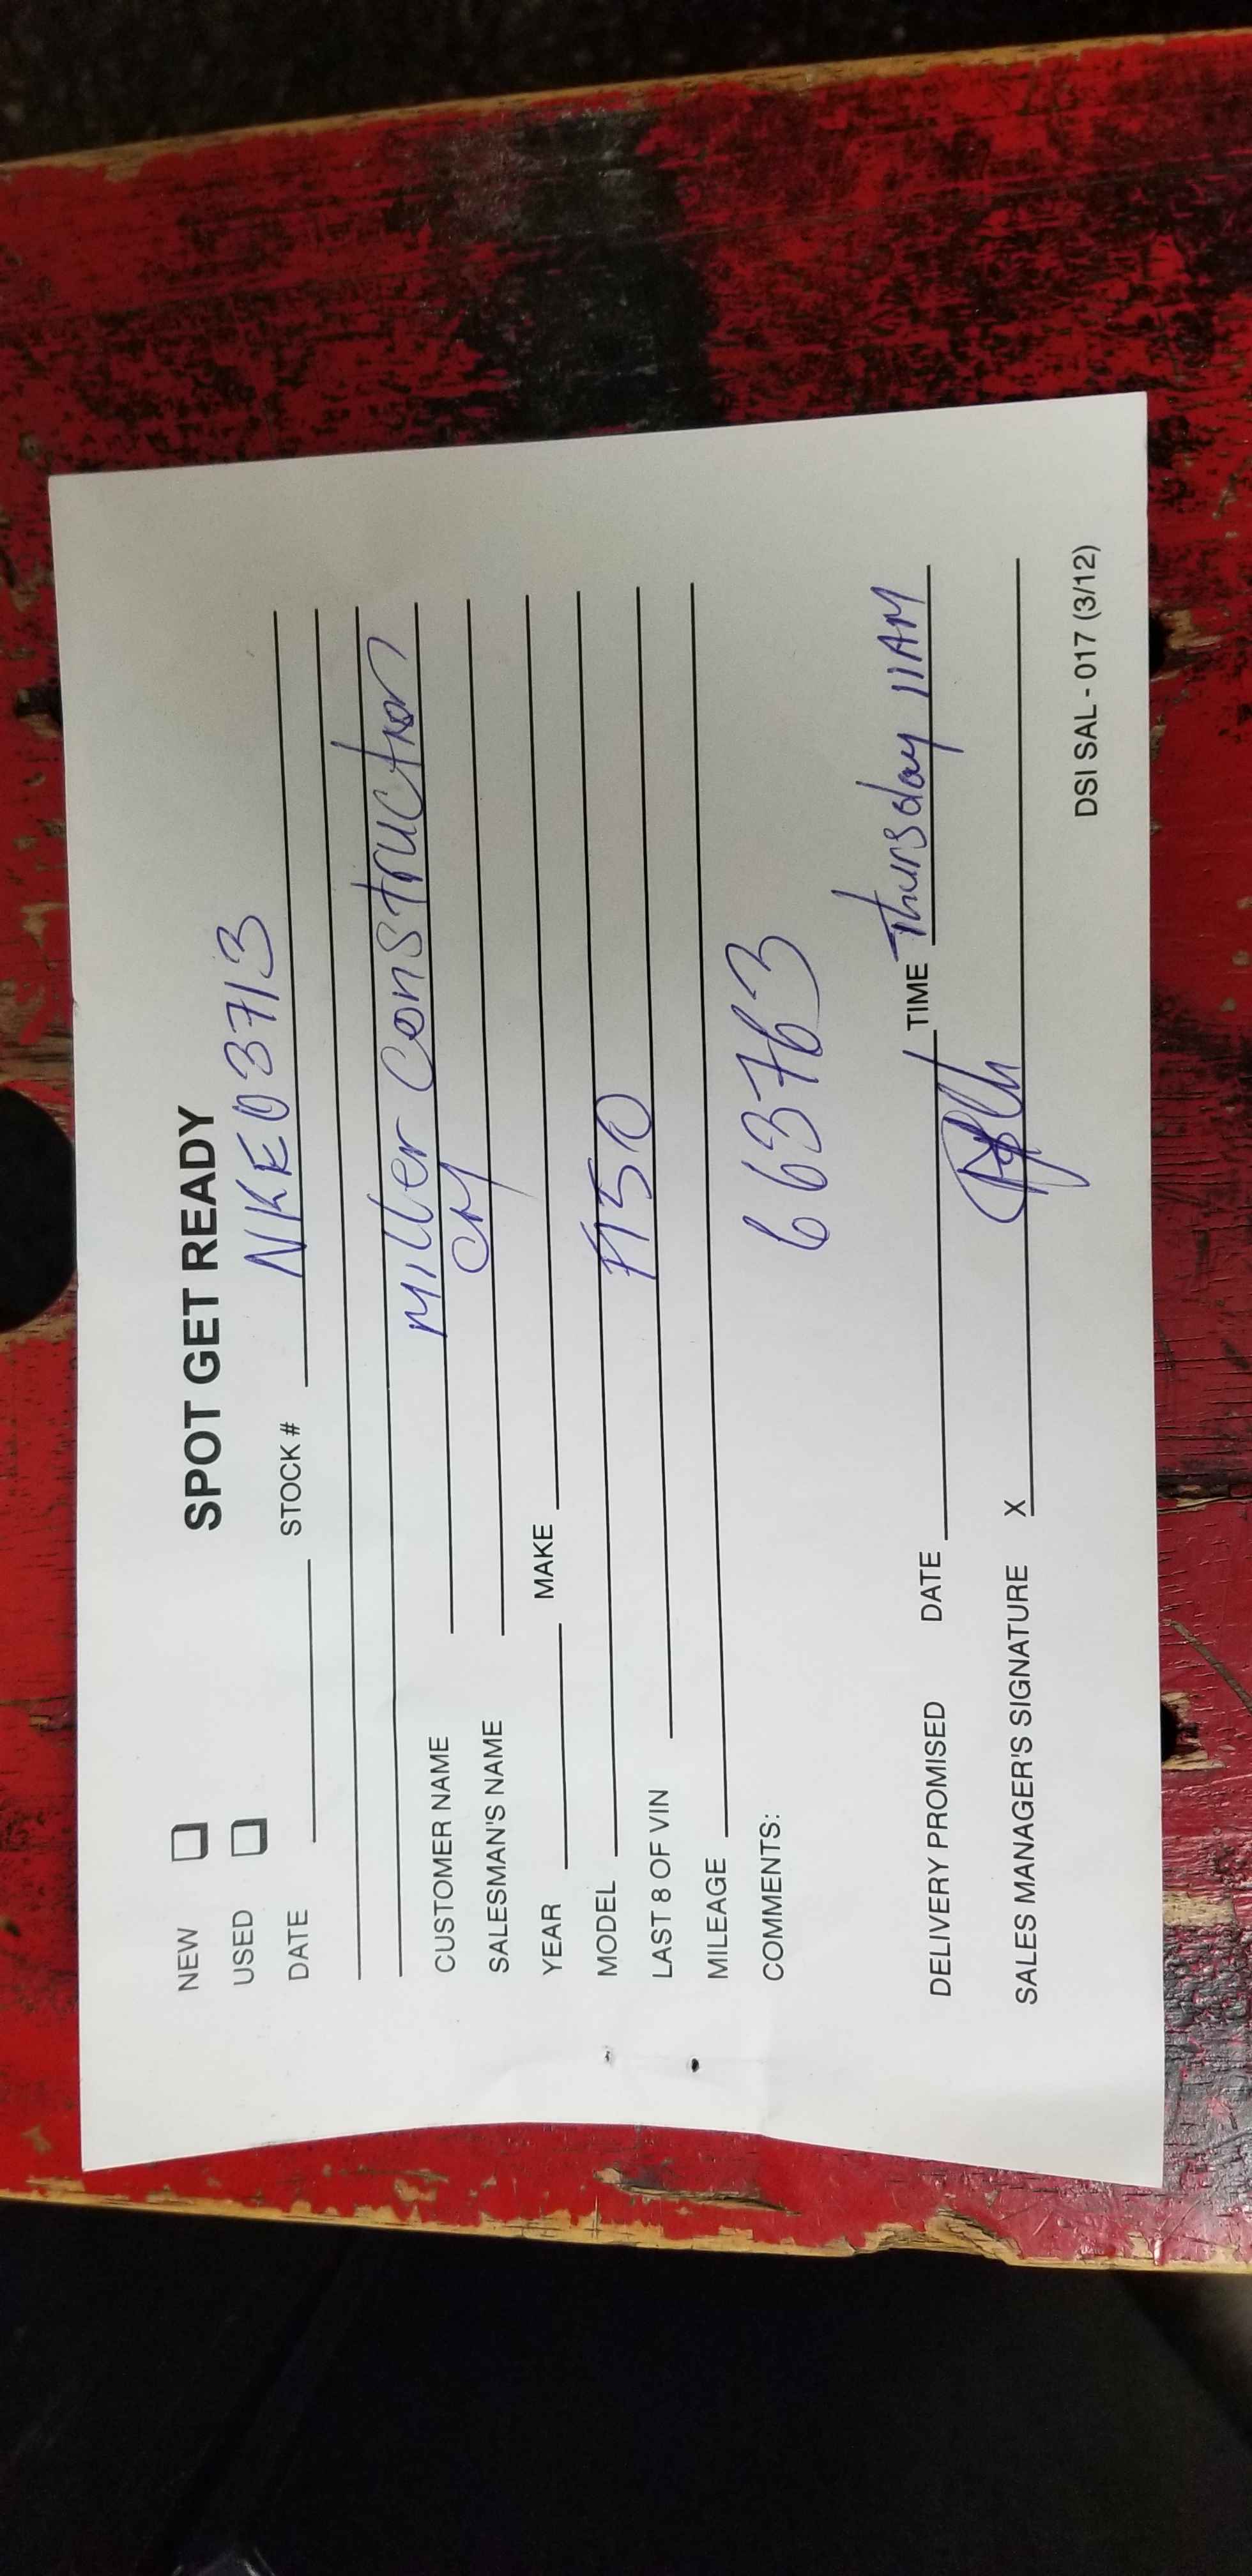 SPOT GET READY
NEW
USED
DATE STOCK # NKE03713
CUSTOMER NAME Miller Construction
SALESMAN'S NAME
YEAR MAKE
MODEL F150
LAST 8 OF VIN
MILEAGE
COMMENTS: 663763
DELIVERY PROMISED DATE TIME Thursday 11AM
SALES MANAGER'S SIGNATURE X
DSI SAL - 017 (3/12)